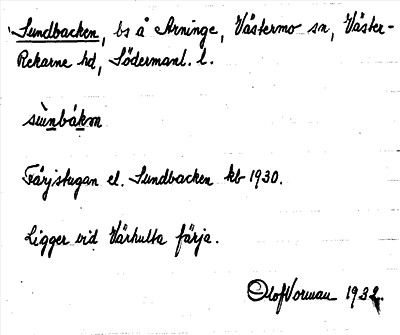 Sundbacken, bs å Arninge, Västermo sn, Väster-
Rekarne hd, Södermanl. l.
sùnbákɷn
Färjstugan el. Sundbacken kb 1930.
Ligger vid Värhulta färja.
Olof Vorman 1932.